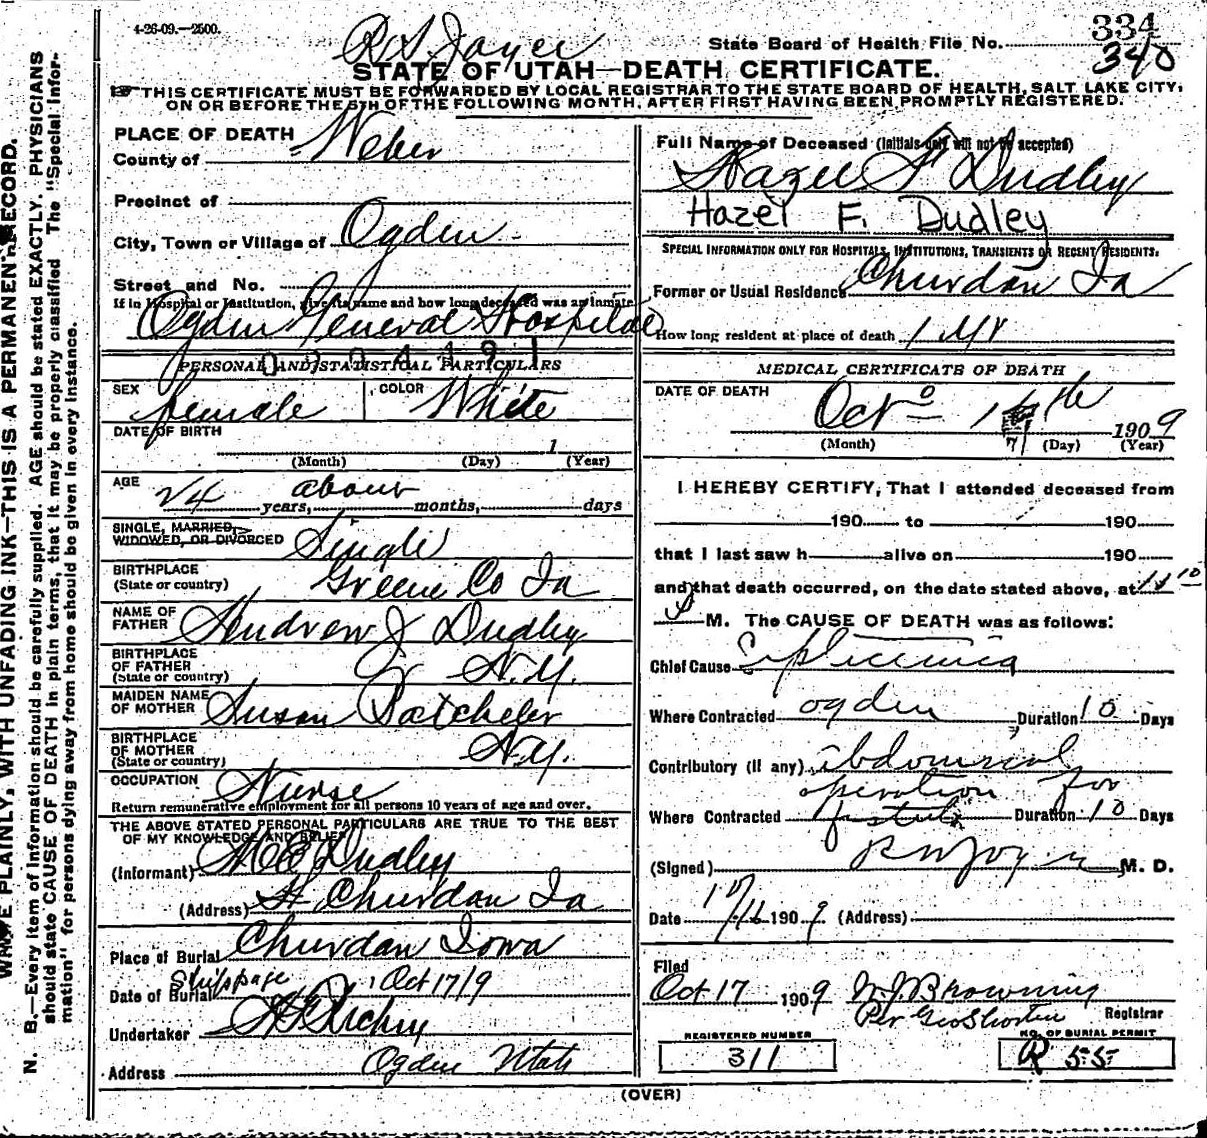 4-26-09.—2500.
334
State Board of Health File No.
340
STATE OF UTAH—DEATH CERTIFICATE.
THIS CERTIFICATE MUST BE FORWARDED BY LOCAL REGISTRAR TO THE STATE BOARD OF HEALTH, SALT LAKE CITY,
ON OR BEFORE THE 5TH OF THE FOLLOWING MONTH, AFTER FIRST HAVING BEEN PROMPTLY REGISTERED.
PLACE OF DEATH
County of Weber
Precinct of
City, Town or Village of Ogden
Street and No.
If in Hospital or Institution, give its name and how long deceased was an inmate
Ogden General Hospital
PERSONAL AND STATISTICAL PARTICULARS
SEX female COLOR White
DATE OF BIRTH
1
(Month) (Day) (Year)
AGE 24 about
years, months, days
SINGLE, MARRIED, WIDOWED, OR DIVORCED Single
BIRTHPLACE
(State or country) Greene Co Ia
NAME OF FATHER Andrew J Dudley
BIRTHPLACE OF FATHER
(State or country) N.Y.
MAIDEN NAME OF MOTHER Susan Batcheler
BIRTHPLACE OF MOTHER
(State or country) N.Y.
OCCUPATION Nurse
Return remunerative employment for all persons 10 years of age and over.
THE ABOVE STATED PERSONAL PARTICULARS ARE TRUE TO THE BEST
OF MY KNOWLEDGE AND BELIEF
(Informant) Dudley
(Address) Churdan Ia
Place of Burial Churdan Iowa
Date of Burial Oct 17/9
Undertaker
Address Ogden Utah
Full Name of Deceased (Initials only will not be accepted)
Hazel F Dudley
Hazel F. Dudley
SPECIAL INFORMATION ONLY FOR HOSPITALS, INSTITUTIONS, TRANSIENTS OR RECENT RESIDENTS:
Former or Usual Residence Churdan Ia
How long resident at place of death 1 Yr
MEDICAL CERTIFICATE OF DEATH
DATE OF DEATH
Oct 1909
(Month) (Day) (Year)
I HEREBY CERTIFY, That I attended deceased from
190 to 190
that I last saw h alive on 190
and that death occurred, on the date stated above, at 11 10
M. The CAUSE OF DEATH was as follows:
Chief Cause Septicemia
Where Contracted Ogden Duration 10 Days
Contributory (if any) abdominal
operation for
Where Contracted fistula Duration 10 Days
(Signed) M. D.
Date 1909 (Address)
Filed
Oct 17 1909 W. J. Browning
Per Geo Shorten Registrar
REGISTERED NUMBER
311
NO. OF BURIAL PERMIT
R 55
(OVER)
WRITE PLAINLY, WITH UNFADING INK—THIS IS A PERMANENT RECORD.
N. B.—Every item of information should be carefully supplied. AGE should be stated EXACTLY. PHYSICIANS
should state CAUSE OF DEATH in plain terms, that it may be properly classified. The "Special Infor-
mation" for persons dying away from home should be given in every instance.